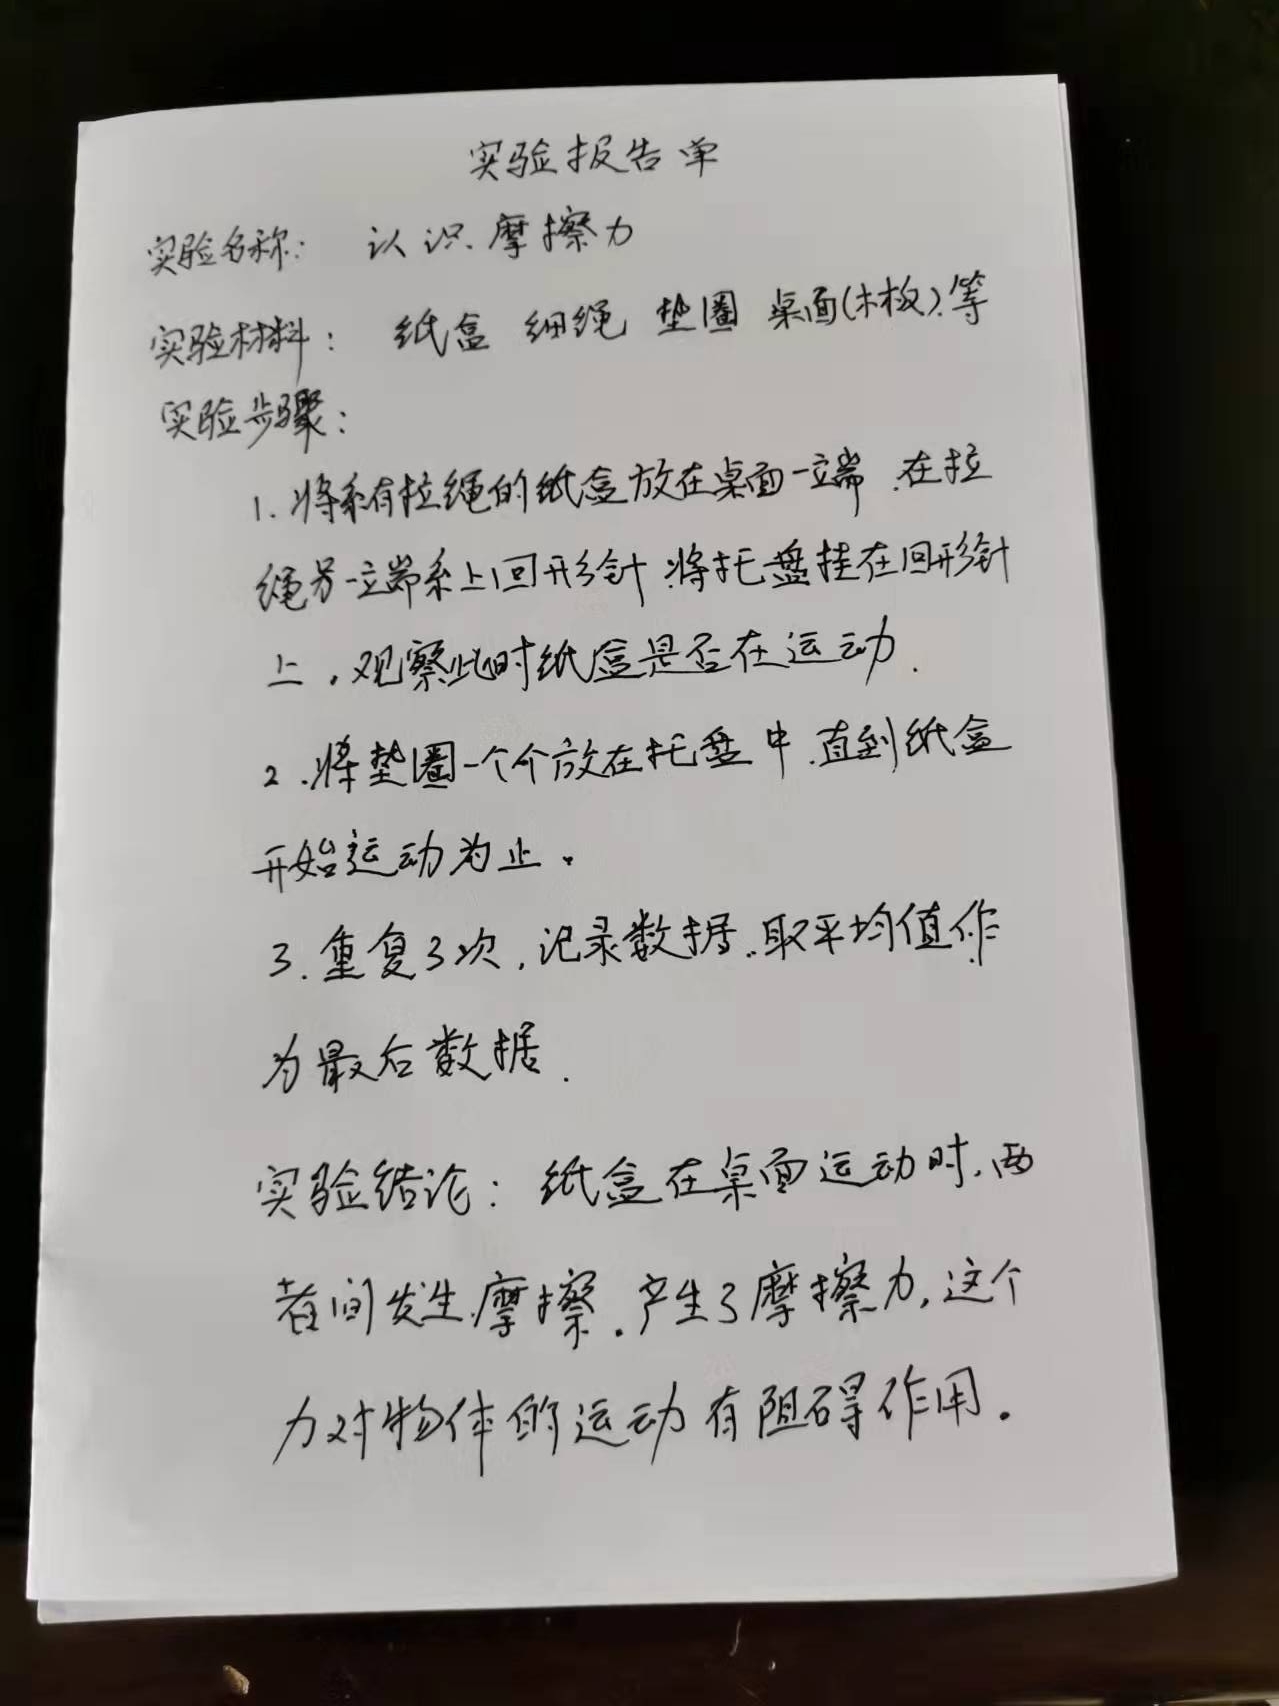 实验报告单
实验名称: 认识摩擦力
实验材料: 纸盒 细绳 垫圈 桌面(木板)等
实验步骤:
1.将系有拉绳的纸盒放在桌面一端.在拉
绳另一端系上回形针.将托盘挂在回形针
上.观察此时纸盒是否在运动.
2.将垫圈一个个放在托盘中.直到纸盒
开始运动为止.
3.重复3次,记录数据.取平均值作
为最后数据.
实验结论:纸盒在桌面运动时.两
者间发生摩擦.产生了摩擦力,这个
力对物体的运动有阻碍作用.